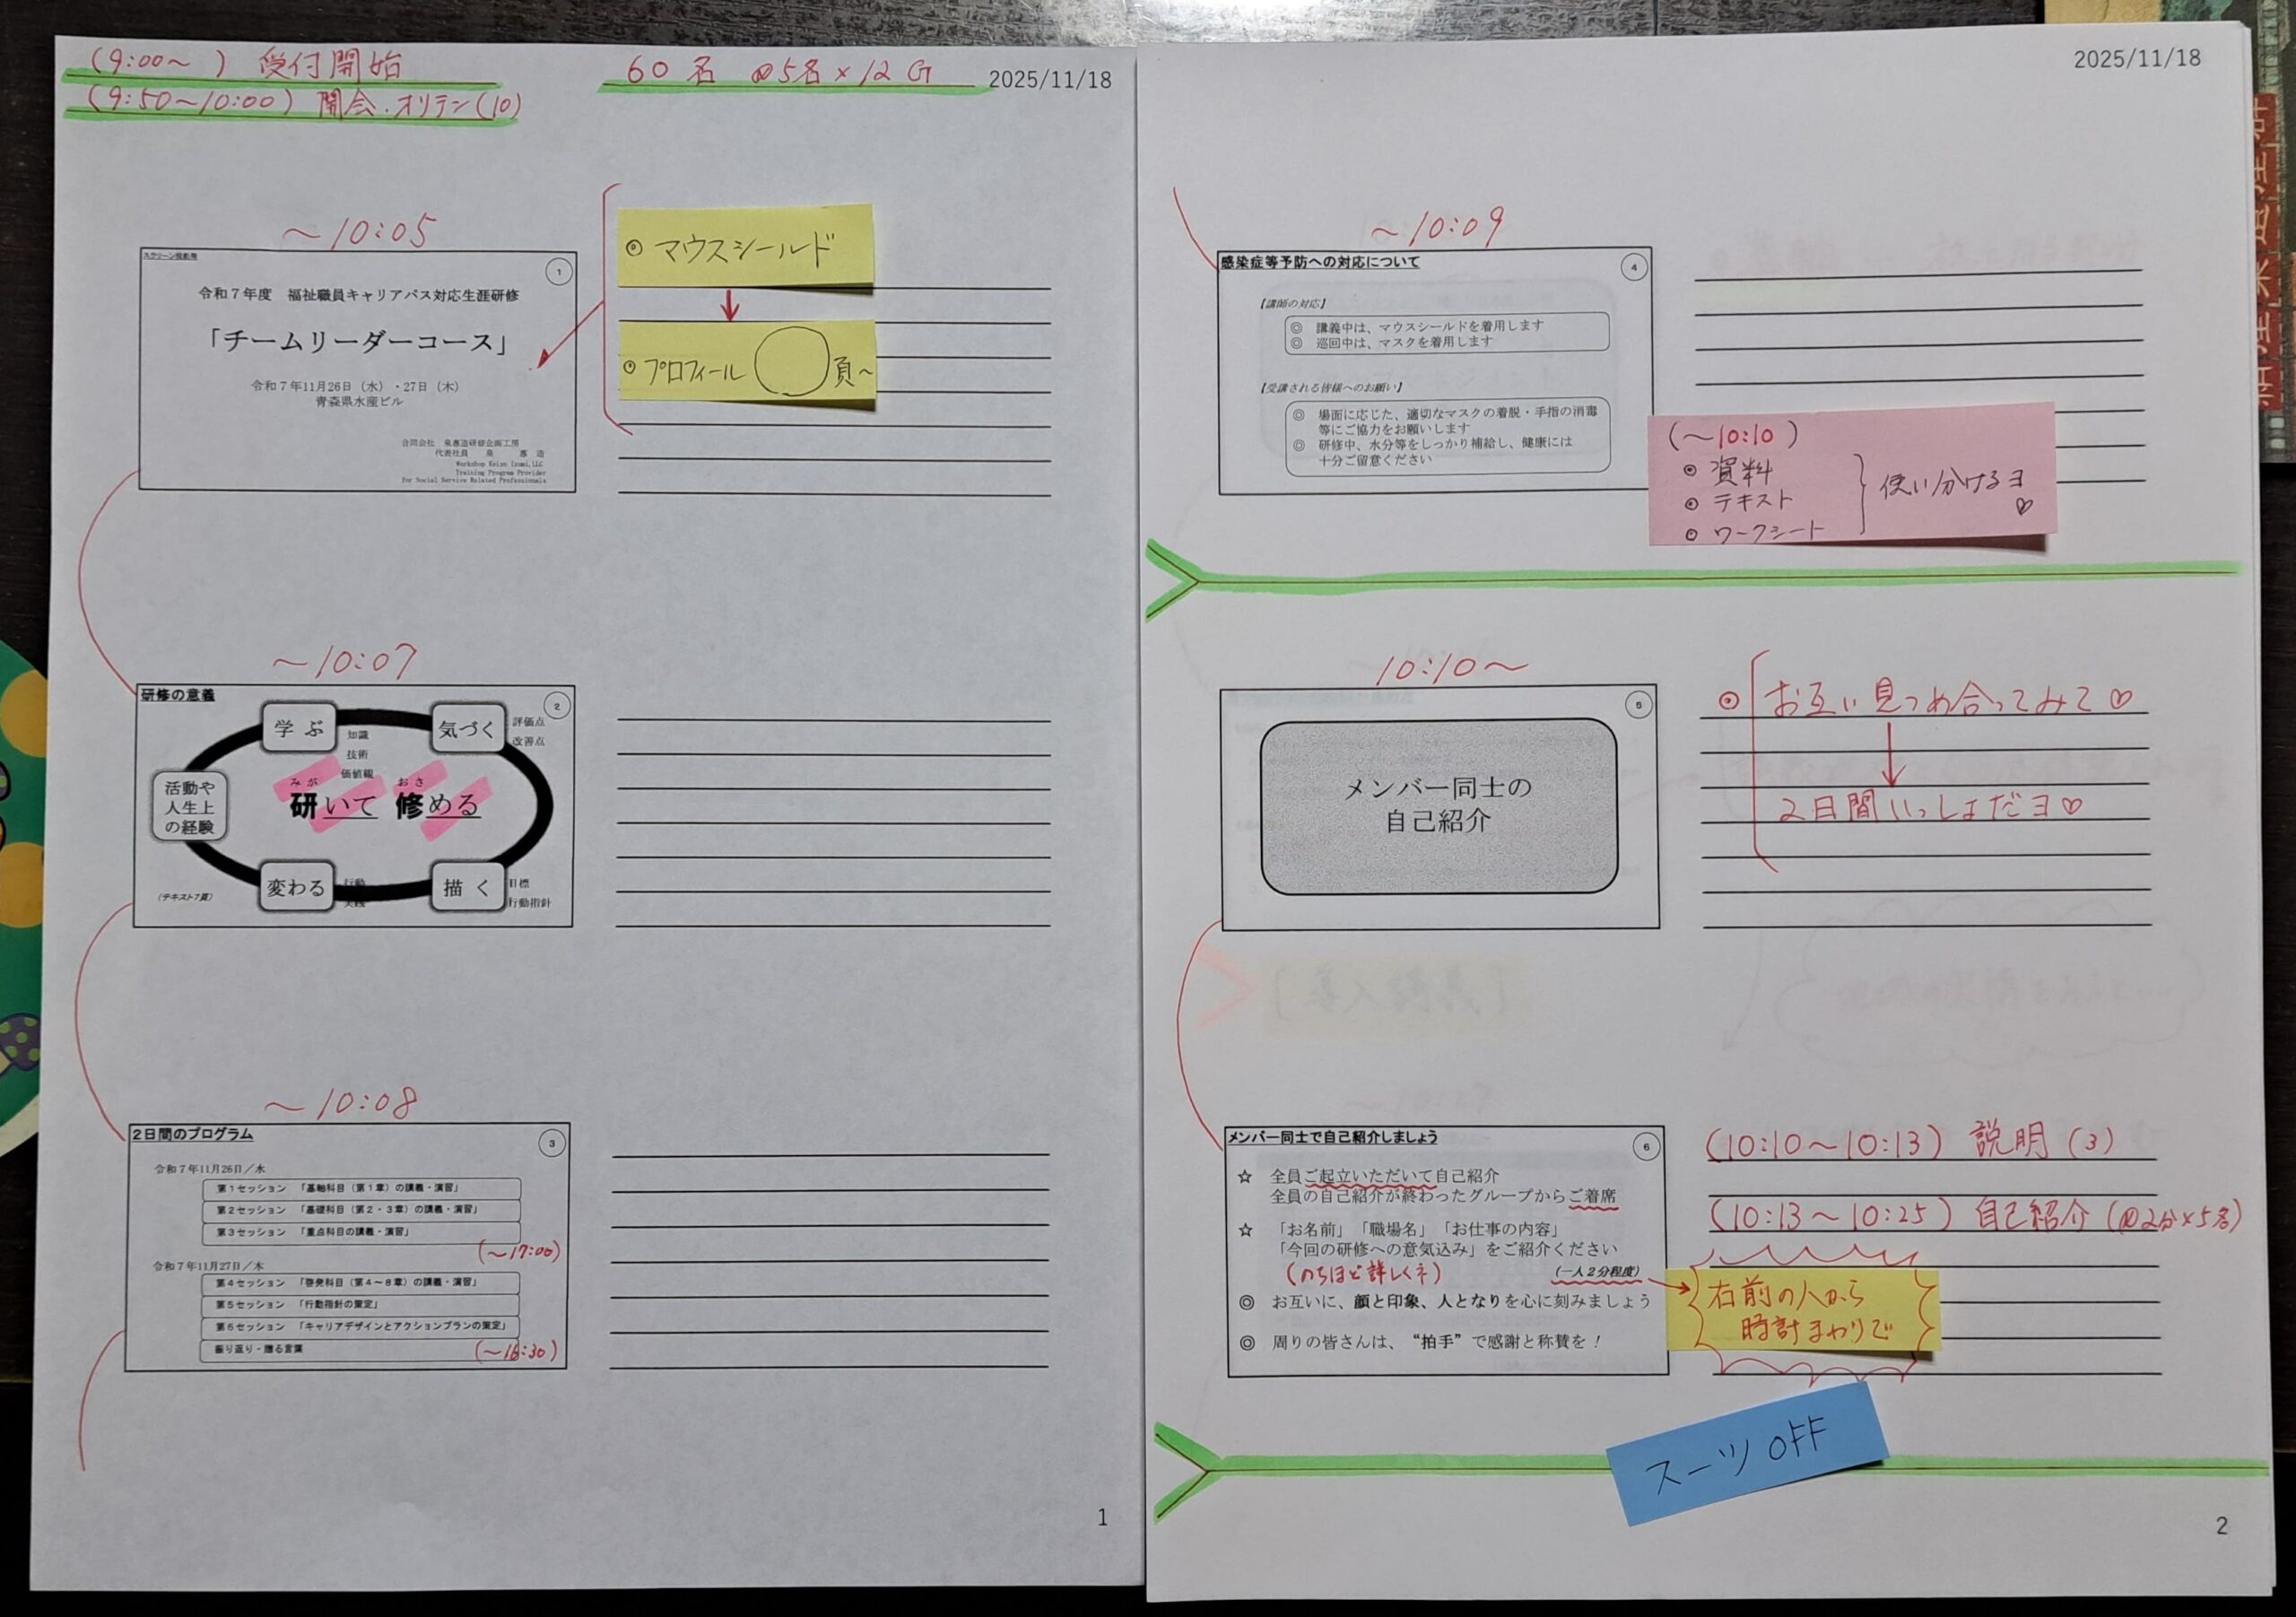 (9:00～ ) 受付開始
(9:50～10:00) 開会・オリテン(10)
60名 @5名×12G
2025/11/18
～10:05
スクリーン投影用
1
令和７年度 福祉職員キャリアパス対応生涯研修
「チームリーダーコース」
令和７年11月26日（水）・27日（木）
青森県水産ビル
合同会社 泉惠造研修企画工房
代表社員 泉 惠 造
Workshop Keizo Izumi,LLC
Training Program Provider
For Social Service Related Professionals
◎ マウスシールド
◎ プロフィール 頁～
～10:07
研修の意義
2
学 ぶ
知識
技術
価値観
気づく
評価点
改善点
活動や
人生上
の経験
みが おさ
研いて 修める
変わる
行動
描 く
目標
行動指針
（テキスト7頁）
～10:08
２日間のプログラム
3
令和７年11月26日／水
第１セッション 「基軸科目（第１章）の講義・演習」
第２セッション 「基礎科目（第２・３章）の講義・演習」
第３セッション 「重点科目の講義・演習」
(～17:00)
令和７年11月27日／木
第４セッション 「啓発科目（第４～８章）の講義・演習」
第５セッション 「行動指針の策定」
第６セッション 「キャリアデザインとアクションプランの策定」
振り返り・贈る言葉
(～16:30)
1
2025/11/18
～10:09
感染症等予防への対応について
4
【講師の対応】
◎ 講義中は、マウスシールドを着用します
◎ 巡回中は、マスクを着用します
【受講される皆様へのお願い】
◎ 場面に応じた、適切なマスクの着脱・手指の消毒
等にご協力をお願いします
◎ 研修中、水分等をしっかり補給し、健康には
十分ご留意ください
(～10:10)
◎ 資料
◎ テキスト
◎ ワークシート
使い分けるヨ♡
10:10～
5
メンバー同士の
自己紹介
◎ お互い見つめ合ってみて♡
２日間いっしょだヨ♡
メンバー同士で自己紹介しましょう
6
☆ 全員ご起立いただいて自己紹介
全員の自己紹介が終わったグループからご着席
☆ 「お名前」「職場名」「お仕事の内容」
「今回の研修への意気込み」をご紹介ください
(のちほど詳しくネ)
（一人２分程度）
◎ お互いに、顔と印象、人となりを心に刻みましょう
◎ 周りの皆さんは、“拍手”で感謝と称賛を！
(10:10～10:13) 説明 (3)
(10:13～10:25) 自己紹介 (@2分×5名)
右前の人から
時計まわりで
スーツOFF
2